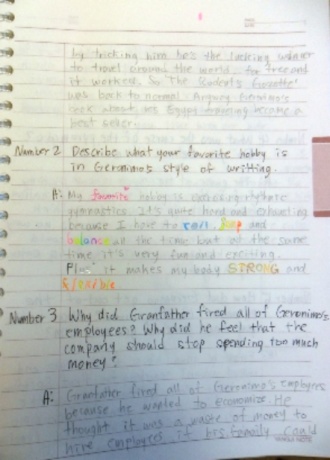 by tricking him he's the lucky winner
to travel around the world for free and
it workers. So The Rodent's Gazette
was back to normal. Anyway Geronimo's
book about his Egypt became a
best seller.
Number 2 Describe what your favorite hobby is
in Geronimo's style of writting.
A: My favorite hobby is rhythmic
gymnastics. It's quite hard and exhausting
because I have to and
balance all the time but at the same
time it's very fun and exciting.
Plus it makes my body STRONG and
flexible
Number 3. Why did Granfather fired all of Geronimo's
employees? Why did he feel that the
company should stop spending too much
money?
A: Granfather fired all of Geronimo's employees
because he wanted to economise. He
thought it was a waste of money to
hire employees if his family could